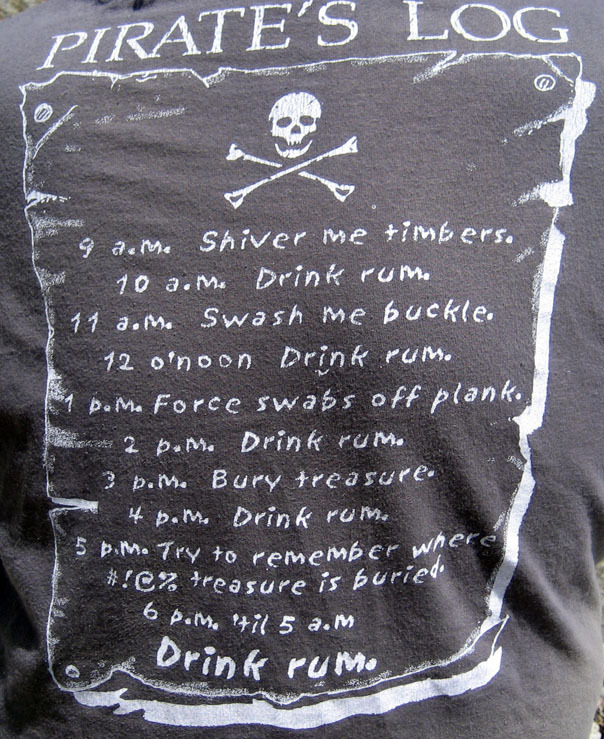 PIRATE'S LOG
9 a.m. Shiver me timbers.
10 a.m. Drink rum.
11 a.m. Swash me buckle.
12 o'noon Drink rum.
1 p.m. Force swabs off plank.
2 p.m. Drink rum.
3 p.m. Bury treasure.
4 p.m. Drink rum.
5 p.m. Try to remember where
#!@% treasure is buried.
6 p.m. 'til 5 a.m
Drink rum.